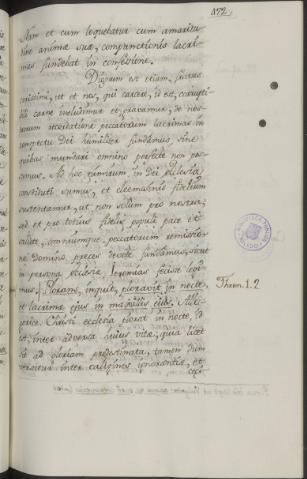 372.
Nam et cum loqueretur cum amaritu-
dine animæ suæ, compunctionis lacri-
mas fundebat in confessione.
Dignum est etiam, fratres
carissimi, ut et nos, qui carcere, id est, corrupti-
bili carne includimur et gravamur, de nos-
trorum recordatione peccatorum lacrimas in
conspectu Dei humiliter fundamus, sine
quibus mundari omnino perfecte non pos-
sumus. Ad hoc namdum, in Dei Ecclesia
constituti sumus, et eleemosinis fidelium
sustentamur, ut non solum pro nostra,
sed et pro totius fidelis populi pace et
salute, omniumque peccatorum remissio-
ne Domino preces devote fundamus, sicut
in persona Ecclesiæ, Jeremias fecisse legi-
mus: Plorans, inquit, ploravit in nocte,
et lacrimæ ejus in maxillis ejus.
Thren. 1. 2
Christi ecclesia plorat in nocte, id
est, inter adversa hujus vitæ, quia licet
sit ad gloriam predestinata, tamen dum
versatur inter caligines ignorantiæ, et